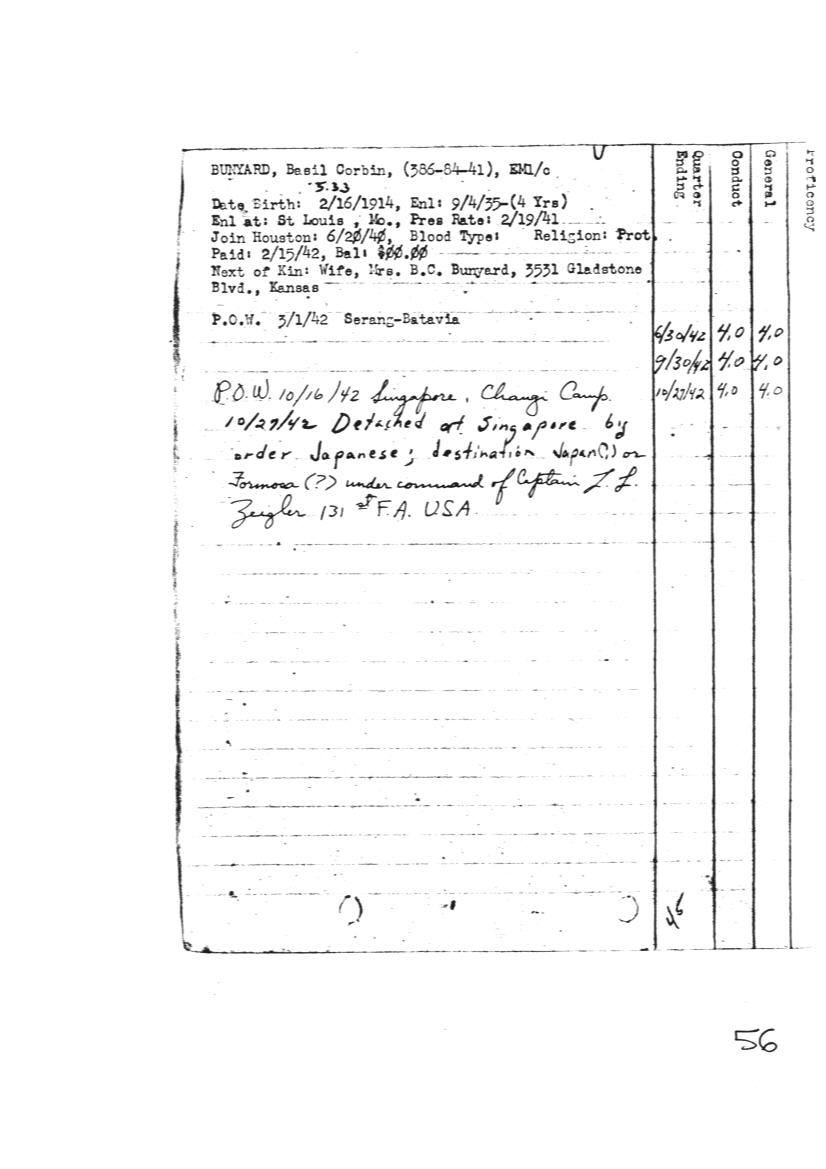 BUNYARD, Basil Corbin, (386-84-41), EM1/c
5.33
Date Birth: 2/16/1914, Enl: 9/4/35-(4 Yrs)
Enl at: St Louis , Mo., Pres Rate: 2/19/41
Join Houston: 6/20/40, Blood Type: Religion: Prot.
Paid: 2/15/42, Bal: $00.00
Next of Kin: Wife, Mrs. B.C. Bunyard, 3531 Gladstone
Blvd., Kansas
P.O.W. 3/1/42 Serang-Batavia
P.O.W. 10/16/42 Singapore, Changi Camp.
10/27/42 Detached at Singapore by
order Japanese; destination Japan(?) or
Formosa (?) under command of Captain
Zeigler 131 st F.A. USA
Quarter
Ending
Conduct
General
Proficency
6/30/42 4.0 4.0
9/30/42 4.0 4.0
10/27/42 4.0 4.0
46
56